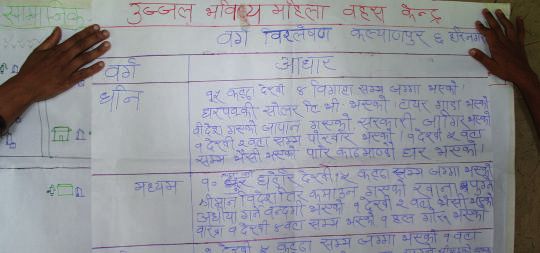 सामाजिक
उज्जल भविष्य महिला वहस केन्द्र
वर्ग विश्लेषण कल्याणपुर ६ हरिनगर
वर्ग आधार
धनि १५ कठ्ठा देखी ४ विगाहा सम्म जग्गा भएको।
घरपक्की सोलर टि भी भएको। टायर गाडा भएको
विदेश गएको जापान गएको, सरकारी जागिर भएको
१ देखी २ वटा सम्म परिवार भएको। १ देखी २ वटा
सम्म भैसी भएको पारि काठमाण्डौ घर भएको।
मध्यम १० धुर देखी १५ कठ्ठा सम्म जग्गा भएको
श्रीमान विदेश तिर कमाउन गएको खाना पुग्ने
अधीया गर्ने वन्दगी भएको १ देखी २ वटा भैसी भएको
वाख्रा १ देखी ४ वटा सम्म भएको १ हल गोरु भएको
देखी ५ कठ्ठा सम्म जग्गा भएको १ वटा